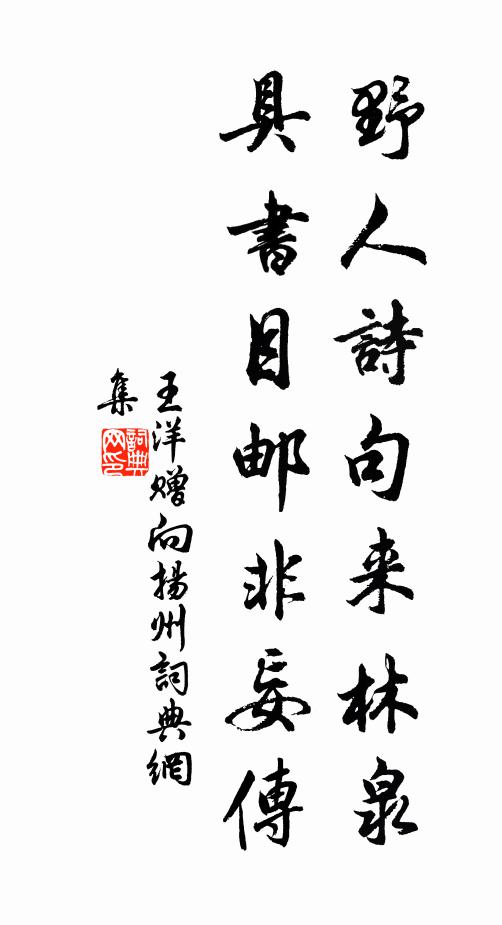 野人詩句来林泉
具書目邮非妄傳
王洋赠向揚州詞典網
集
詞典
网印